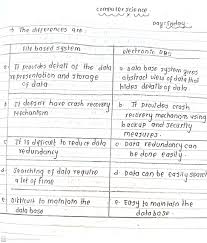 computer science
Day: Friday
→ The differences are:
file based system
electronic DBS
a. It provides detail of the data
representation and storage
of data
a. Data base system gives
abstract view of data that
hides detail of data
b. It doesn't have crash recovery
mechanism
b. It provides crash
recovery mechanism using
backup and security
measures.
c. It is difficult to reduce data
redundancy
c. Data redundancy can
be done easily.
d. Searching of data require
a lot of time
d. Data can be easily search
e. Difficult to maintain the
data base
e. Easy to maintain the
database.